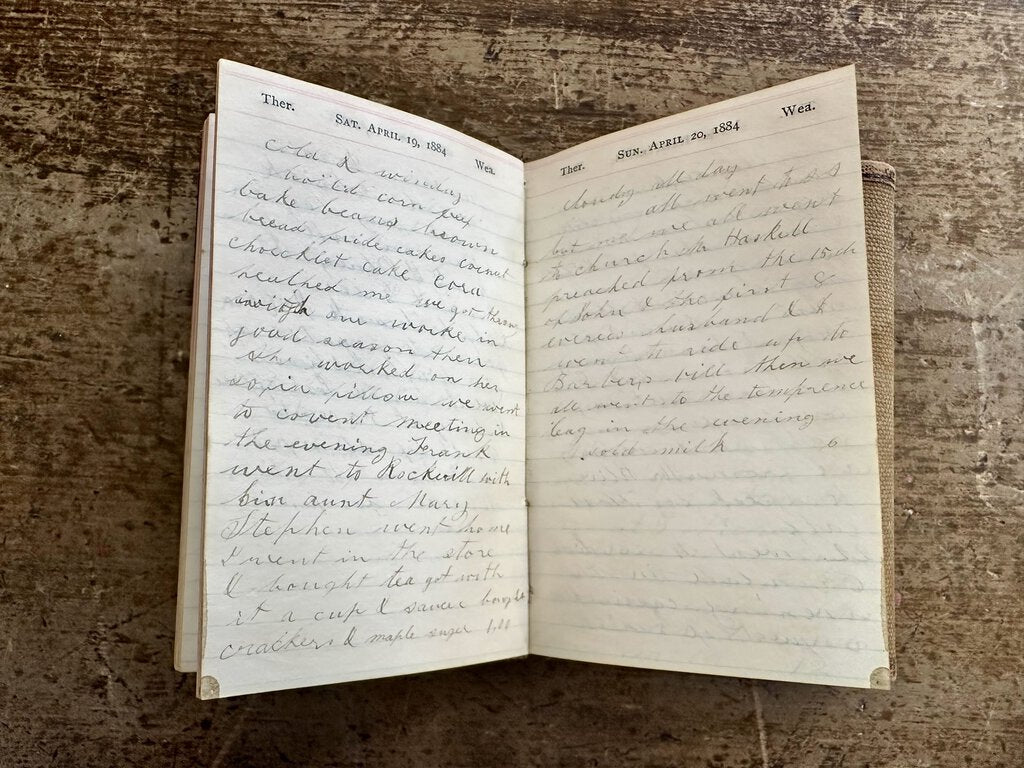 Ther.
SAT. APRIL 19, 1884
Wea.
cold & winday
boild corn beef
bake beans brown
bread fride cakes cocnut
chocklet cake Cora
me we got throug
with our worke in
good season then
she worked on her
sofia pillow we went
to covent meeting in
the evening Frank
went to Rockvill with
him aunt Mary
Stephen went home
I went in the store
& bought tea got with
it a cup & saucer bought
crackers & maple suger 1,00
Ther.
SUN. APRIL 20, 1884
Wea.
cloudy all day
all went to S S
but me we all went
to church Mr Haskell
preached from the 15 ch
of John & the first &
verces husband & I
went to ride up to
Barbers vill then we
all went to the temprence
leag in the evening
sold milk 6